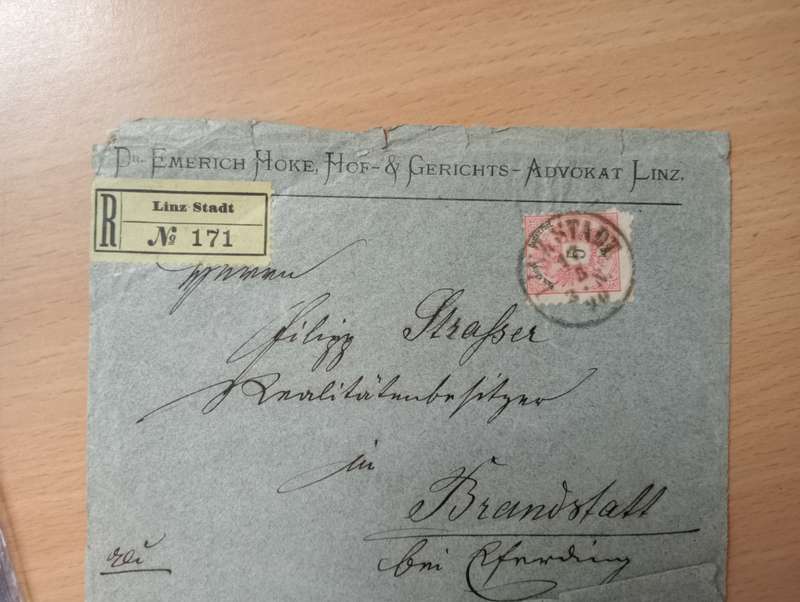 DR. EMERICH HOKE, HOF- & GERICHTS-ADVOKAT LINZ.
R
Linz Stadt
№ 171
LINZ STADT
5
90
Herrn
Filipp Strasser
Realitätenbesitzer
in
Brandstatt
bei Eferding